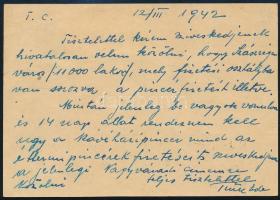 T. C. 12/III 1942
Tisztelettel kérem szíveskedjenek
hivatalosan velem közölni, hogy Kászon
város /11000 lakos/, mely fizetési osztályba
van sorozva a pincérfizetést illetve.
Miután jelenleg be vagyok vonulva
és 14 nap alatt rendeznem kell
úgy a kávéházi pincér mind az
éttermi pincérek fizetését szíveskedjenek
a jelenlegi Nagyváradi címemre
közölni teljes tisztelettel